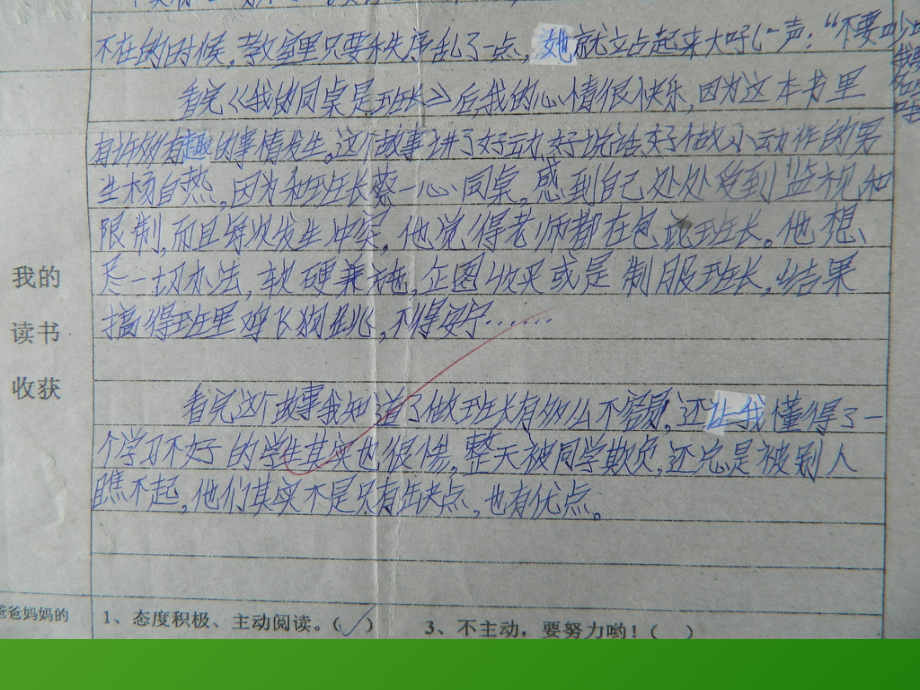 不在的时候，教室里只要秩序乱了一点，她就立占起来大吼一声：“不要吵
看完《我的同桌是班长》后，我的心情很快乐，因为这本书里
有许多有趣的事情发生。这个故事讲了好动、好说话、好做小动作的男
生杨自热，因为和班长蔡一心同桌，感到自己处处受到监视和
限制，而且每次发生冲突，他觉得老师都在包庇班长。他想
尽一切办法，软硬兼施，企图收买或是制服班长，结果
搞得班里鸡飞狗跳，不得安宁……
我的
读书
收获
看完这个故事我知道了做班长有多么不容易，还让我懂得了一
个学习不好的学生其实也很惨，整天被同学欺负，还总是被别人
瞧不起，他们其实不是只有缺点，也有优点。
爸爸妈妈的
1、态度积极、主动阅读。（✓）
3、不主动，要努力哟！（ ）